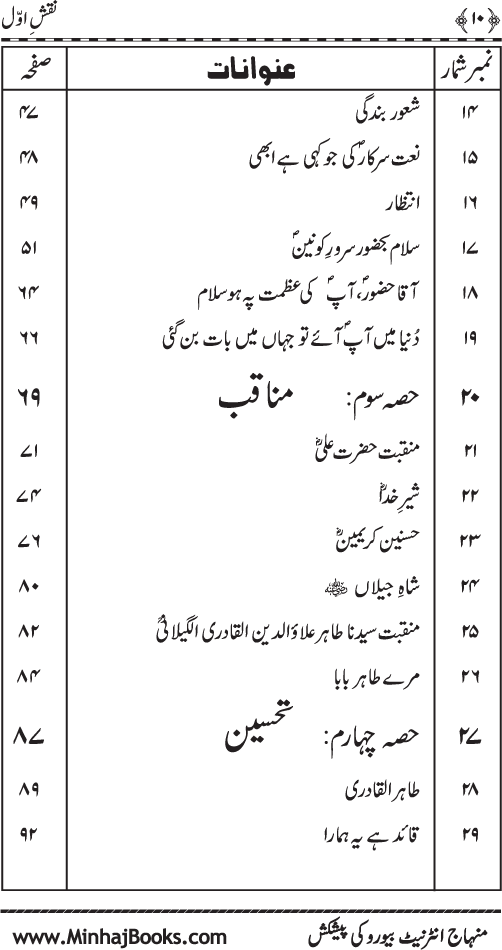 ﴿۱۰﴾ نقشِ اوّل
نمبر شمار عنوانات صفحہ
۱۴ شعور بندگی ۴۷
۱۵ نعت سرکارؐ کی جو کہی ہے ابھی ۴۸
۱۶ انتظار ۴۹
۱۷ سلام بحضور سرورِ کونینؐ ۵۱
۱۸ آقا حضورؐ، آپؐ کی عظمت پہ ہو سلام ۶۴
۱۹ دُنیا میں آپؐ آئے تو جہاں میں بات بن گئی ۶۶
۲۰ حصہ سوم: مناقب ۶۹
۲۱ منقبت حضرت علیؓ ۷۱
۲۲ شیرِ خداؓ ۷۴
۲۳ حسنین کریمینؓ ۷۶
۲۴ شاہِ جیلاں ۸۰
۲۵ منقبت سیدنا طاہر علاؤالدین القادری الگیلانیؒ ۸۲
۲۶ مرے طاہر بابا ۸۴
۲۷ حصہ چہارم: تحسین ۸۷
۲۸ طاہر القادری ۸۹
۲۹ قائد ہے یہ ہمارا ۹۲
منہاج انٹرنیٹ بیورو کی پیشکش www.MinhajBooks.com